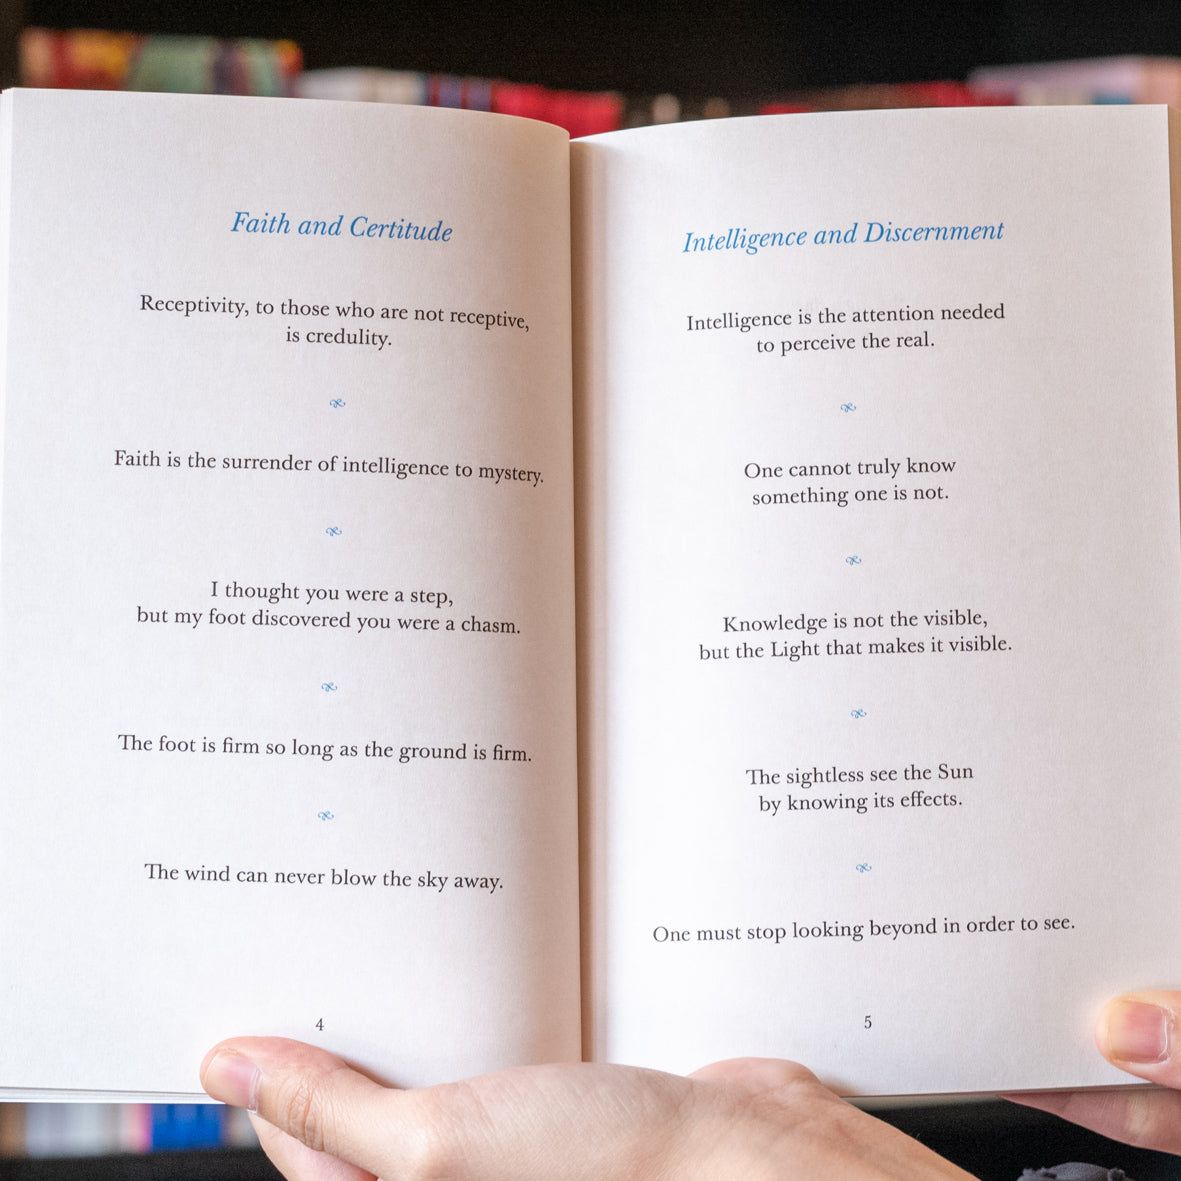 Faith and Certitude
Receptivity, to those who are not receptive,
is credulity.
Faith is the surrender of intelligence to mystery.
I thought you were a step,
but my foot discovered you were a chasm.
The foot is firm so long as the ground is firm.
The wind can never blow the sky away.
4
Intelligence and Discernment
Intelligence is the attention needed
to perceive the real.
One cannot truly know
something one is not.
Knowledge is not the visible,
but the Light that makes it visible.
The sightless see the Sun
by knowing its effects.
One must stop looking beyond in order to see.
5